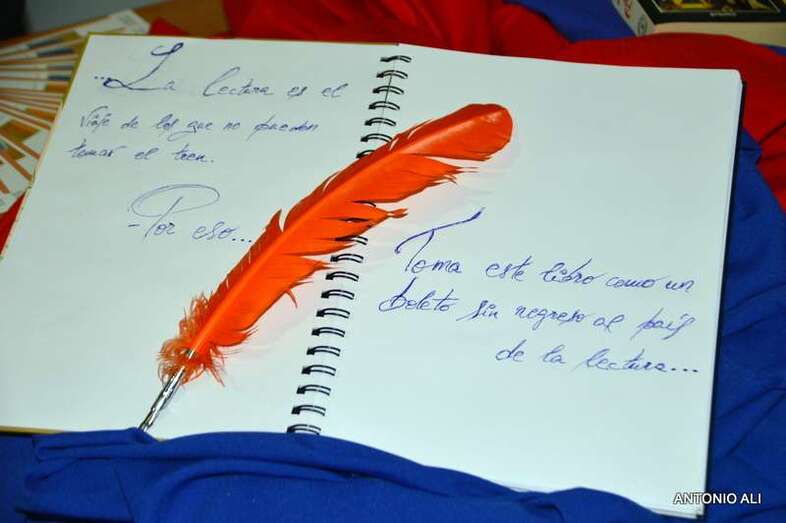 ...La lectura es el
viaje de los que no pueden
tomar el tren.
-Por eso...
Toma este libro como un
boleto sin regreso al país
de la lectura...
ANTONIO ALI